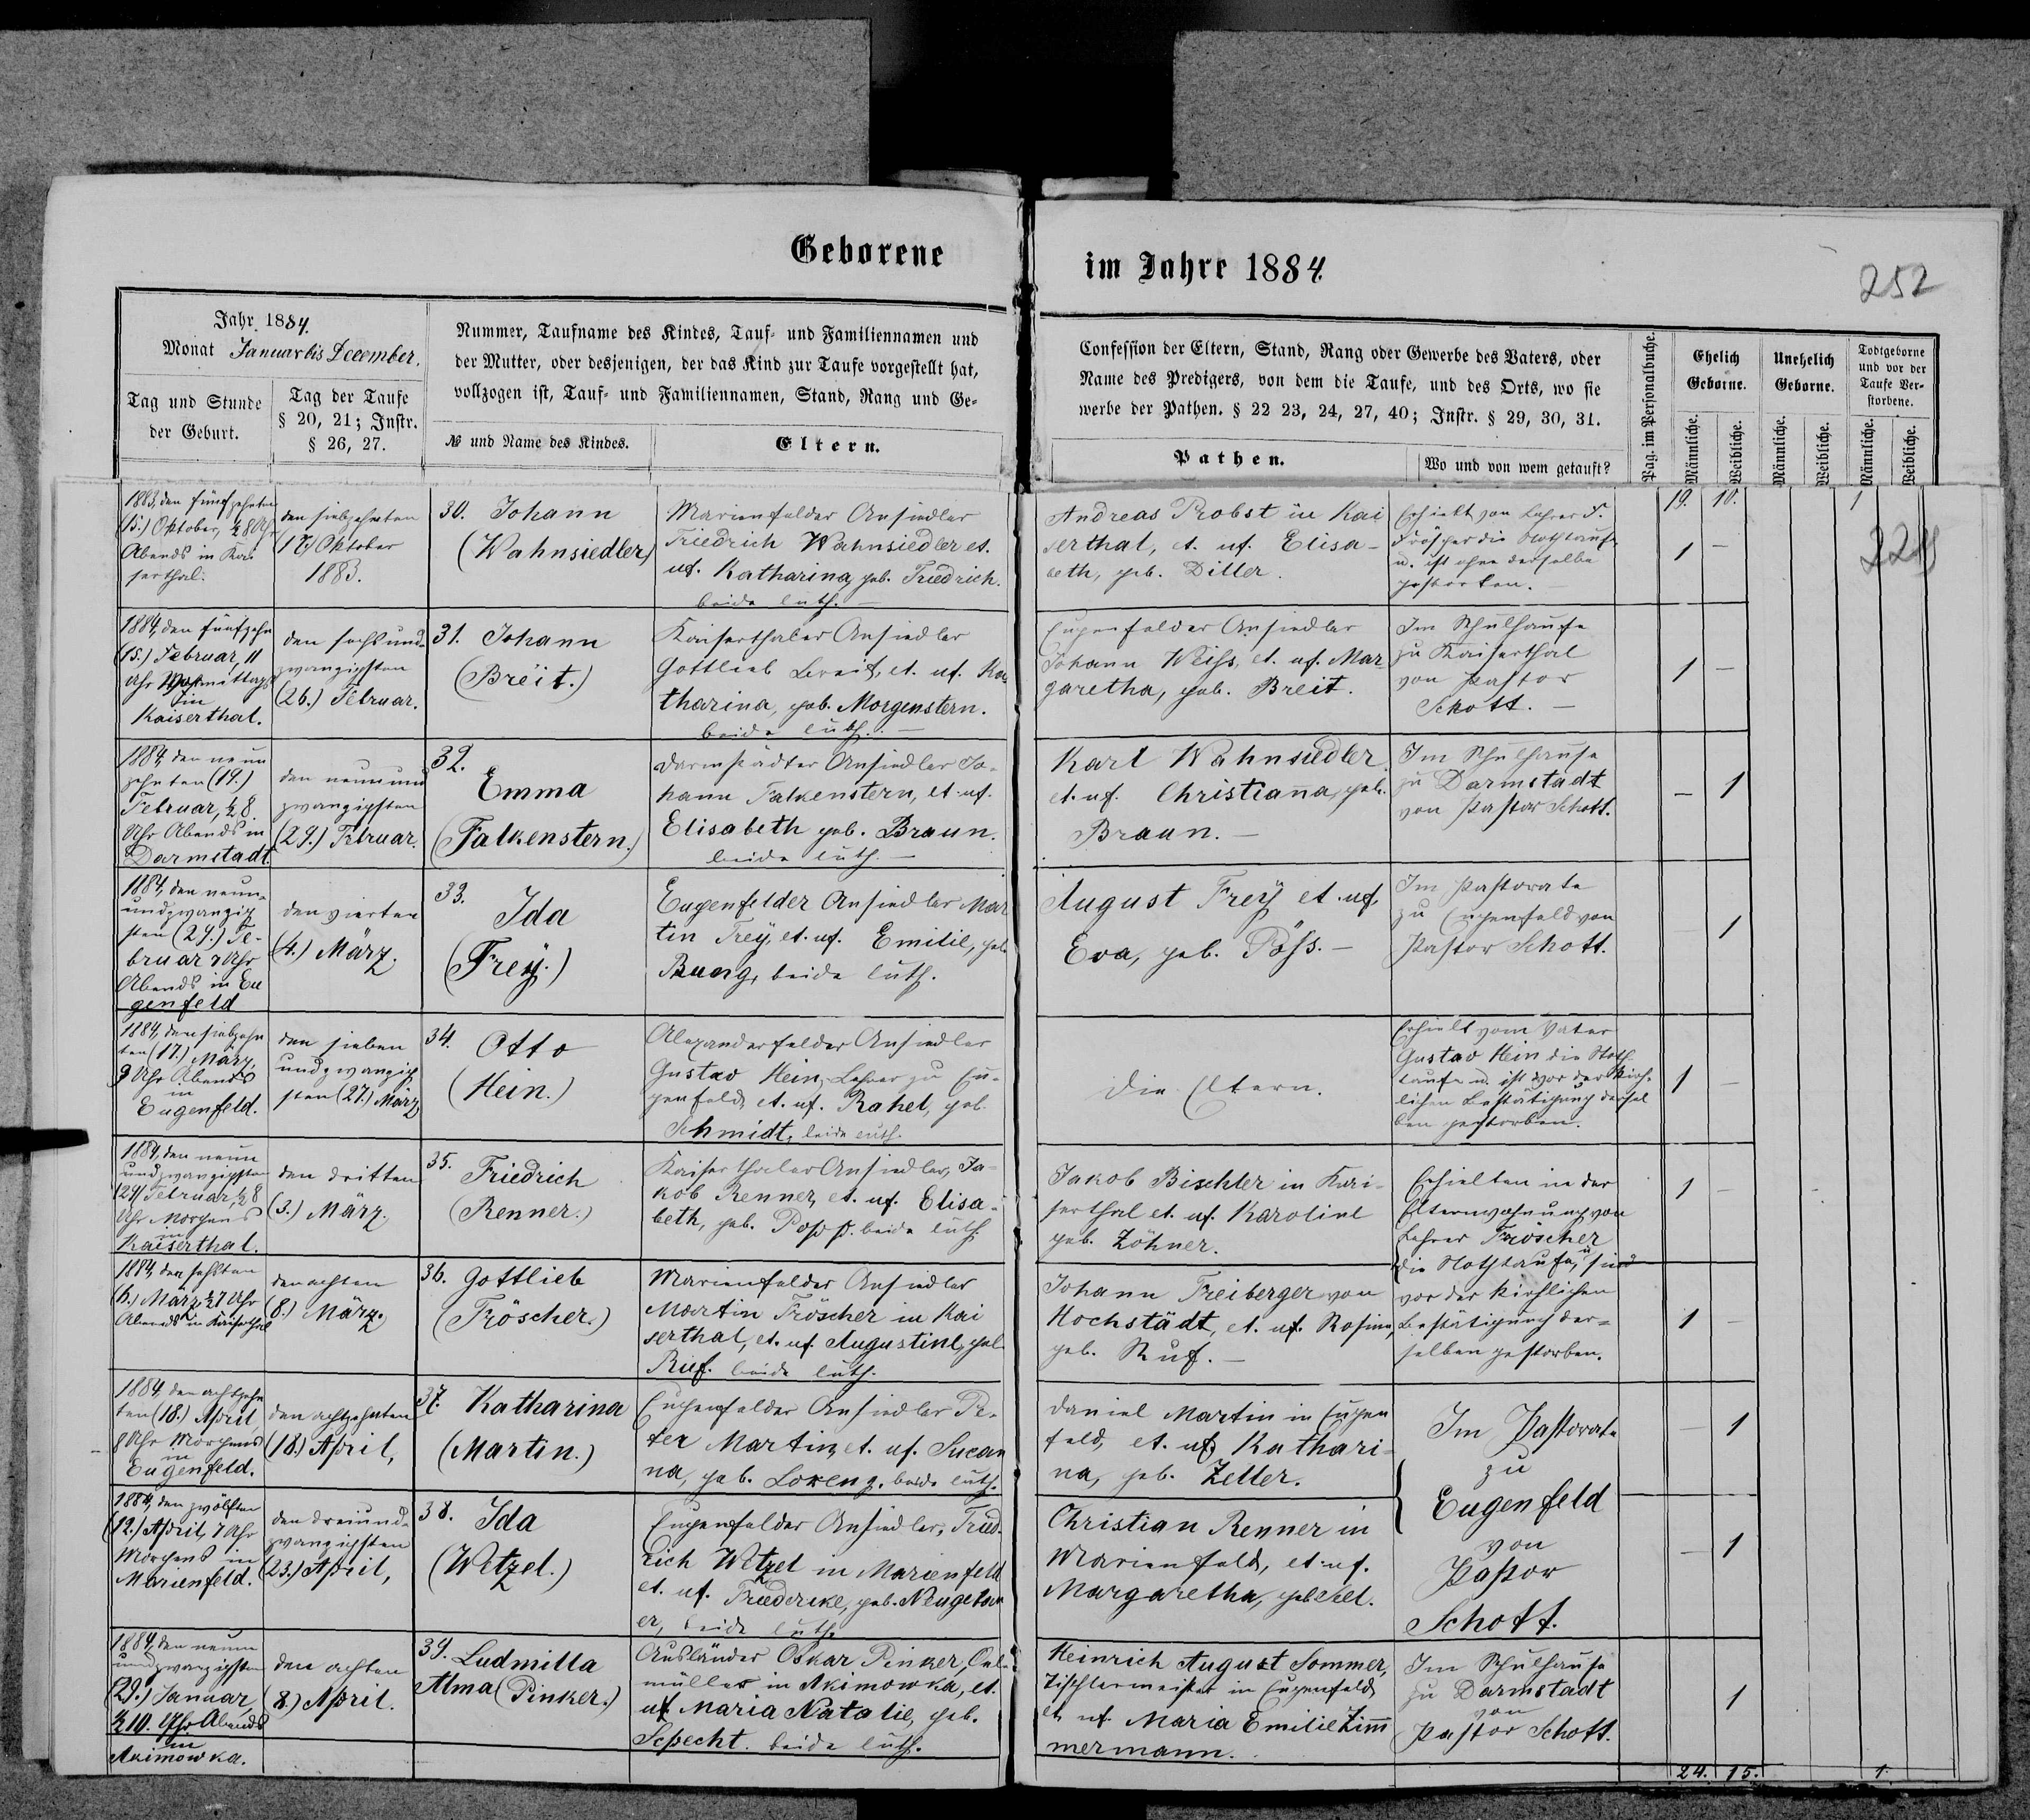 Geborene
im Jahre 1884.
252
Jahr 1884.
Monat Januar bis December.
Tag und Stunde
der Geburt.
Tag der Taufe
§ 20, 21; Instr.
§ 26, 27.
Nummer, Taufname des Kindes, Tauf- und Familiennamen und
der Mutter, oder desjenigen, der das Kind zur Taufe vorgestellt hat,
vollzogen ist, Tauf- und Familiennamen, Stand, Rang und Ge-
№ und Name des Kindes.
Eltern.
Confession der Eltern, Stand, Rang oder Gewerbe des Vaters, oder
Name des Predigers, von dem die Taufe, und des Orts, wo sie
werbe der Pathen. § 22 23, 24, 27, 40; Instr. § 29, 30, 31.
Pathen.
Wo und von wem getauft?
Pag. im Personalbuche.
Ehelich
Geborne.
Unehelich
Geborne.
Todtgeborne
und vor der
Taufe Ver-
storbene.
Männliche.
Weibliche.
Männliche.
Weibliche.
Männliche.
Weibliche.
19. 10. 1
1883, den fünfzehnten
(15.) Oktober, ½ 8 Uhr
Abends in Kai
serthal.
den siebzehnten
17.) Oktober
1883.
30. Johann
(Wahnsiedler)
Marienfelder Ansiedler
Friedrich Wahnsiedler et.
ux. Katharina, geb. Friedrich.
beide luth. —
Andreas Probst in Kai
serthal, et. ux. Elisa-
beth, geb. Ditler.
Erhielt von Lehrer F.
Fröscher die Nothtaufe
u. ist ohne derselbe
gestorben. —
1 —
1884, den fünfzehn
(15.) Februar, 11
Uhr Vormittags
in
Kaiserthal.
den sechsund-
zwanzigsten
(26.) Februar.
31. Johann
(Breit.)
Kaiserthaler Ansiedler
Gottlieb Breit, et. ux. Ka-
tharina, geb. Morgenstern.
beide luth. —
Eugenfelder Ansiedler
Johann Weiss, et. ux. Mar-
garetha, geb. Breit.
Im Schulhause
zu Kaiserthal
von Pastor
Schott. —
1 —
1884, den neun
zehnten (19.)
Februar, ½ 8.
Uhr Abends in
Darmstadt.
den neunund
zwanzigsten
(29.) Februar.
32.
Emma
(Falkenstern.)
Darmstädter Ansiedler Jo-
hann Falkenstern, et. ux.
Elisabeth geb. Braun.
beide luth. —
Karl Wahnsiedler
et. ux. Christianna, geb.
Braun. —
Im Schulhause
zu Darmstadt
von Pastor Schott.
— 1
1884, den neun-
undzwanzig
sten (29.) Fe-
bruar 7 Uhr
Abends in Eu
genfeld
den vierten
(4.) März.
33.
Ida
(Frey.)
Eugenfelder Ansiedler Mar
tin Frey, et. ux. Emilie, geb.
Buerg, beide luth.
August Frey et. ux.
Eva, geb. Pöss. —
Im Pastorate
zu Eugenfeld von
Pastor Schott.
— 1
1884, den siebzehn
ten (17.) März,
9 Uhr Abends
in
Eugenfeld.
den sieben
undzwanzig
sten (27.) März
34. Otto
(Hein.)
Alexanderfelder Ansiedler
Gustav Hein, Lehrer zu Eu-
genfeld, et. ux. Rahel, geb.
Schmidt, beide luth.
Die Eltern.
Erhielt vom Vater
Gustav Hein die Noth
taufe u. ist vor der kirch-
lichen Bestätigung dersel
ben gestorben.
1 —
1884, den neun
undzwanzigsten
(29) Februar, ½ 8
Uhr Morgens
in
Kaiserthal.
den dritten
(3.) März.
35. Friedrich
(Renner.)
Kaiserthaler Ansiedler, Ja-
kob Renner, et. ux. Elisa-
beth, geb. Popp. beide luth.
Jakob Bischler in Kai-
serthal et. ux. Karoline
geb. Zöhner.
Erhielten in der
Elternwohnung von
Lehrer Fröscher
die Nothtaufe, u. sind
1 —
1884, den sechsten
(6.) März, ½7 Uhr
Abends in Kaiserthal
den achten
(8.) März.
36. Gottlieb
(Fröscher.)
Marienfelder Ansiedler
Martin Fröscher in Kai
serthal, et. ux. Augustine, geb.
Rief. beide luth.
Johann Freiberger von
Hochstädt, et. ux. Rosina,
geb. Ruf. —
vor der kirchlichen
Bestätigung der-
selben gestorben.
1 —
1884, den achtzehn
ten (18.) April
8 Uhr Morgens
in
Eugenfeld.
den achtzehnten
(18.) April,
37. Katharina
(Martin.)
Eugenfelder Ansiedler Pe-
ter Martin, et. ux. Susan
na, geb. Lorenz. beide luth.
Daniel Martin in Eugen
feld, et. ux. Kathari-
na, geb. Zeller.
Im Pastorate
zu
Eugenfeld
von
Pastor
Schott.
— 1
1884, den zwölften
(12.) April 7 Uhr
Morgens in
Marienfeld.
den dreiund-
zwanzigsten
(23.) April,
38. Ida
(Wetzel.)
Eugenfelder Ansiedler, Fried-
rich Wetzel in Marienfeld
et. ux. Friederike, geb. Neugebau
er, beide luth.
Christian Renner in
Marienfeld, et. ux.
Margaretha, geb.
— 1
1884, den neun
undzwanzigsten
(29.) Januar,
½ 10. Uhr Abends
in
Akimowka.
den achten
(8.) April.
39. Ludmilla
Alma (Pinker.)
Ausländer Oskar Pinker, Oel-
müller in Akimowka, et.
ux Maria Natalie, geb.
Specht. beide luth.
Heinrich August Sommer,
Tischlermeister in Eugenfeld
et. ux. Maria Emilie Zimm
mermann.
Im Schulhause
zu Darmstadt
von
Pastor Schott.
1
24. 15. 1.